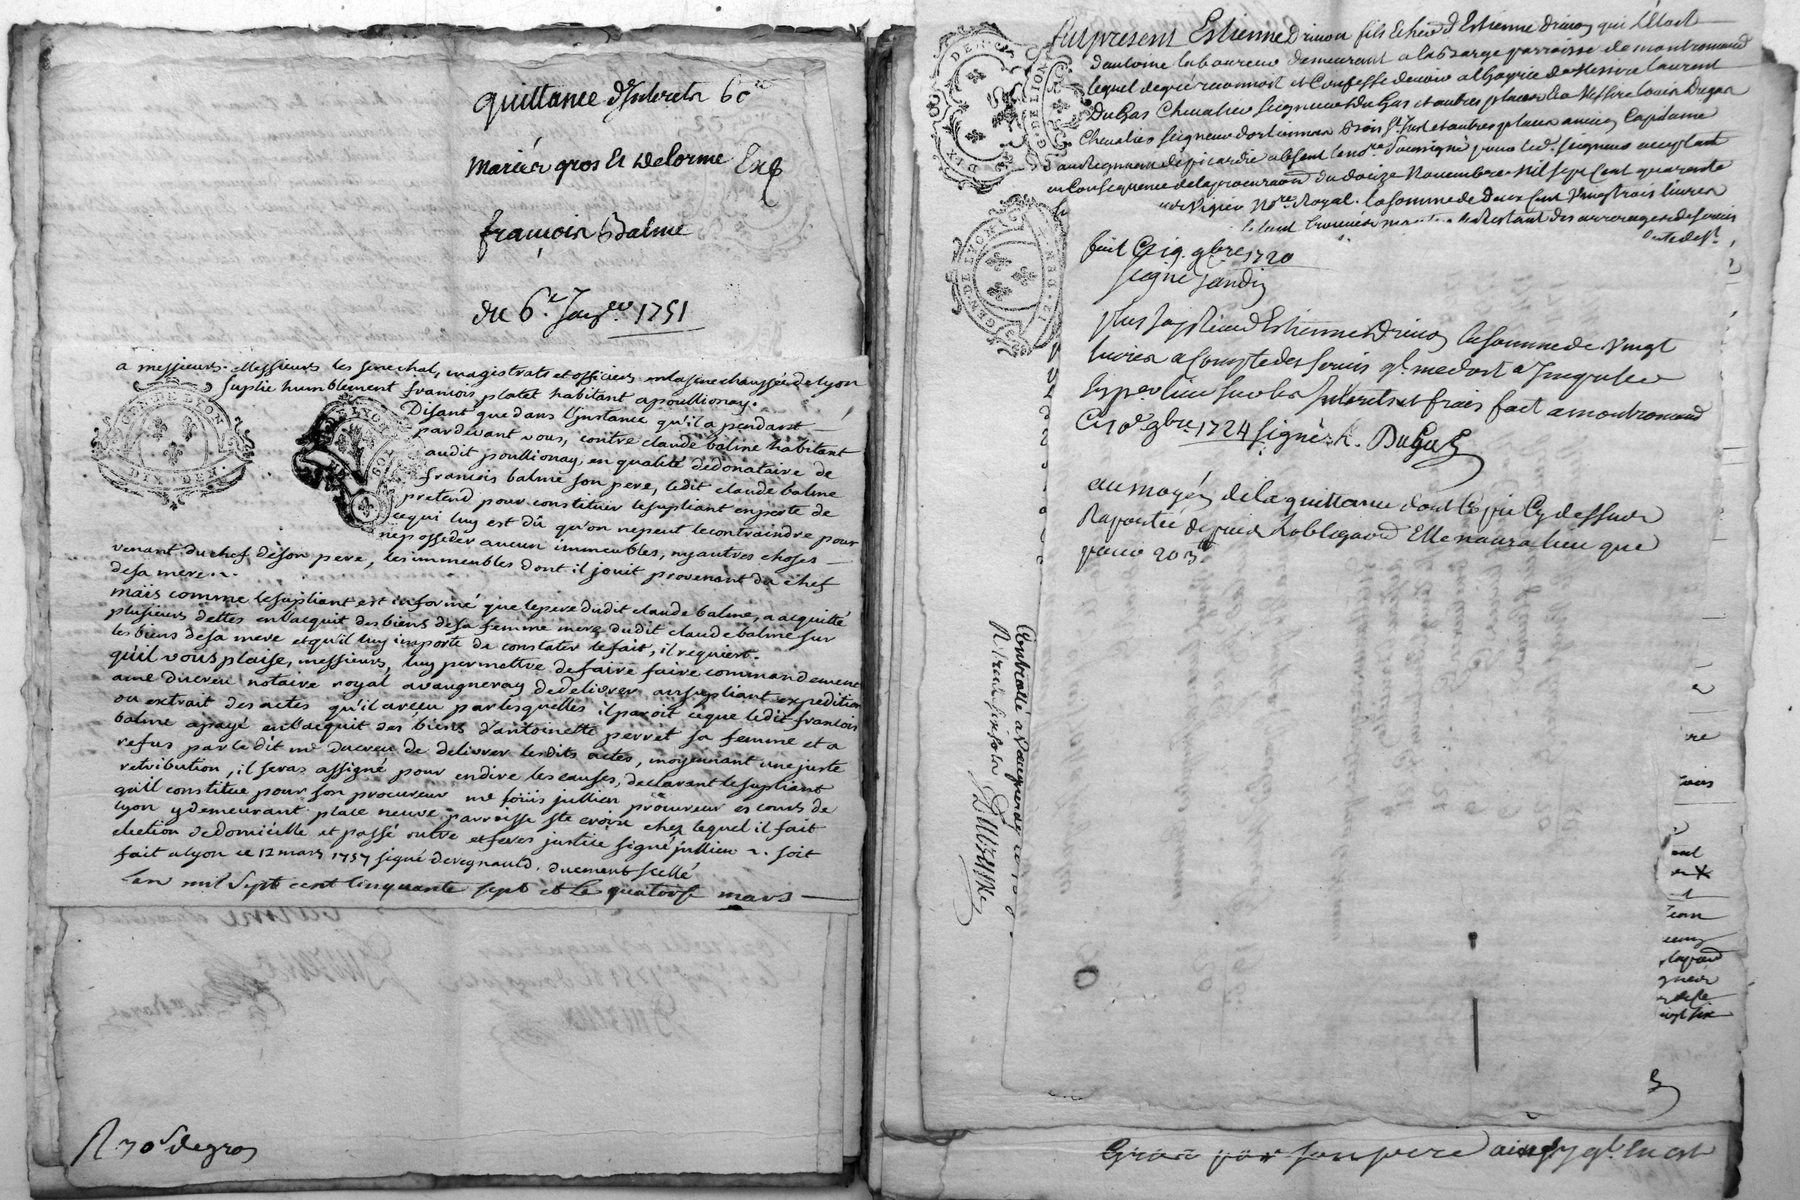 quittance d'Interets 60
mariéa gros et delorme Exp
françois Balme
du 6e Janver 1751
a messieurs Messieurs les senechal, magistrats et officiers en la senechaussée de lyon
suplie humblement francois platet habitant a poullionay.
Disant que dans l'instance qu'il a pendant
pardevant vous, contre claude balme habitant
audit poullionay, en qualité de donataire de
francois balme son pere, ledit claude balme
pretend pour constituer le supliant en perte de
ce qui luy est dû qu'on ne peut le contraindre pour
ne posseder aucun immeubles, ny autres choses
venant du chef de son pere, les immeubles dont il jouit provenant du chef
de sa mere ~.
mais comme le supliant est informé que le pere dudit claude balme, a acquitté
plusieurs dettes en l'acquit des biens de sa femme mere dudit claude balme sur
les biens de sa mere et qu'il luy importe de constater le fait, il requiert.
qu'il vous plaise, messieurs, luy permettre de faire faire commandement
a me Ducreu notaire royal a vaugneray de delivrer au supliant expedition
ou extrait des actes qu'il a reçeu par lesquelles il paroit ce que ledit francois
balme a payé en l'acquit des biens d'antoinette perret sa femme et a
refus par le dit me ducreu de delivrer lesdits actes, moyennant une juste
retribution, il seras assigné pour en dire les causes, declarant le supliant
qu'il constitue pour son procureur me jullien procureur es cours de
lyon y demeurant place neuve parroisse ste croix chez lequel il fait
election de domicille et passé outre et feres justice signé jullien ~. soit
fait a lyon ce 12 mars 1757 signé deregnauld. duement scellé
Lan mil sept cent cinquante sept et le quatorse mars
R. 70s degros
GEN. DE LYON
DIX. DEN.
Fut present Estienne Drivon fils et herd d'Estienne Drivon qui l'Etoit
d'antoine laboureur demeurant a la Barge parroisse de montromand
lequel degré reconnoit et Confesse devoir a l'hoyrie de Messire laurent
DuGas Chevalier Seigneur Du Gas et autres places Messire louis Dugas
Chevalier Seigneur Bois St Just et autres places ancien Capitaine
au Regiment de picardie absent le nore soussigné pour led. seigneur acceptant
en Consequence de la procuraon du douze Novembre Mil sept Cent quarante
Vigier Nore Royal. la somme de Deux Cent Vingt trois livres
restant des arrerages de servis
fait Ce 19. 9bre 1720
signé Jandin
plus Jay Receu d'Estienne Drivon la somme de Vingt
livres a Compte des servis ql. me doit a Jmputer
en per lieu sur les Interets et frais fait a montromand
Ce 10e 9bre 1724 signé h. DuGas
au moyen de la quittance dont Copie Cy dessus
Raportée depuis L'obligaon Elle n'aura lieu que
pour 203ll
Controllé a Vaugneray le
R. treize sols
DEN.
G. DE LION
GEN. DE LYON
re
ois
son pere ainsy ql. en est